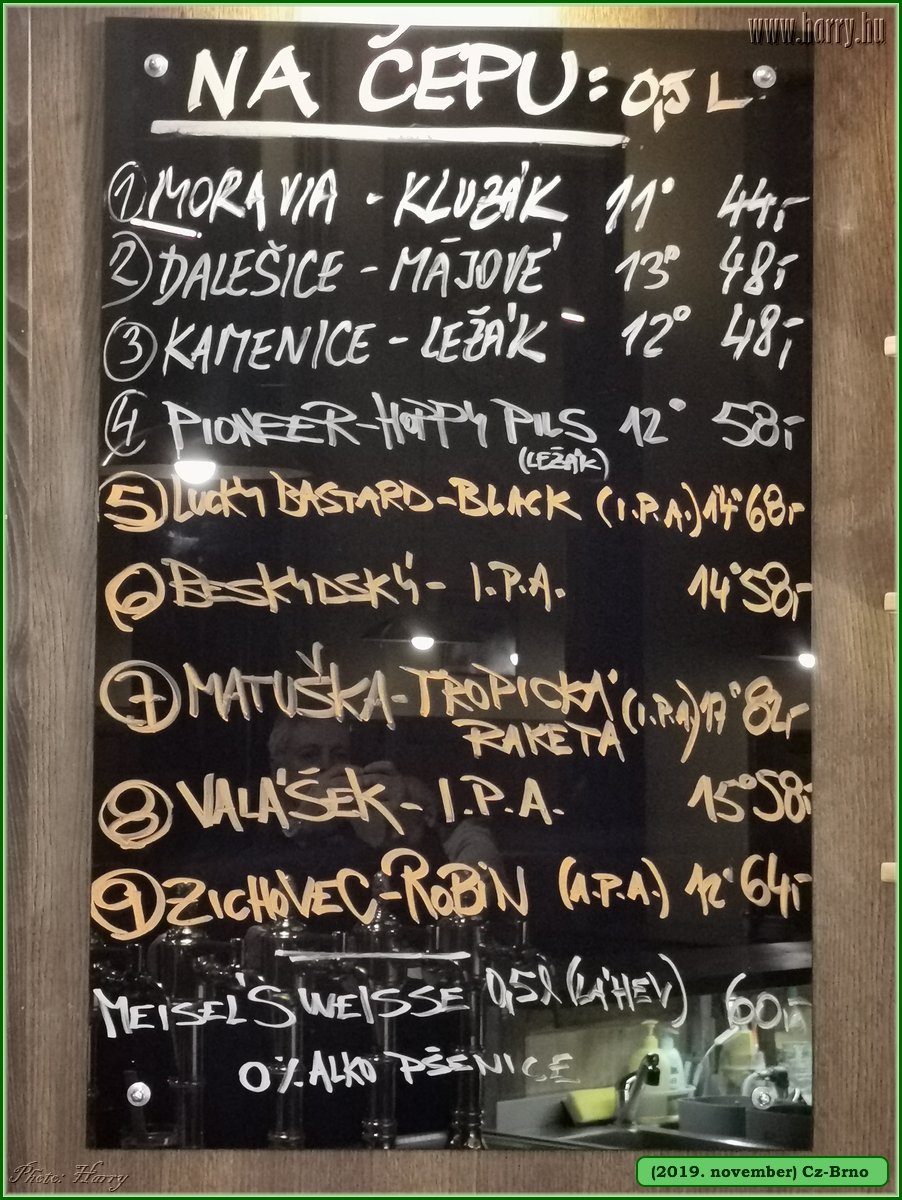 www.harry.hu
NA ČEPU: 0,5 L
1 MORAVIA - KLUZÁK 11° 44,-
2 DALEŠICE - MÁJOVÉ 13° 48,-
3 KAMENICE - LEŽÁK 12° 48,-
4 PIONEER - HOPPY PILS 12° 58,-
(LEŽÁK)
5 LUCKY BASTARD - BLACK (I.P.A.) 14° 68,-
6 BESKYDSKÝ - I.P.A. 14° 58,-
7 MATUŠKA - TROPICKÁ (I.P.A.) 17° 82,-
RAKETA
8 VALÁŠEK - I.P.A. 15° 58,-
9 ZICHOVEC - ROBIN (A.P.A.) 12° 64,-
MEISEL'S WEISSE 0,5l (LÁHEV) 60,-
0% ALKO PŠENICE
Photo: Harry
(2019. november) Cz-Brno